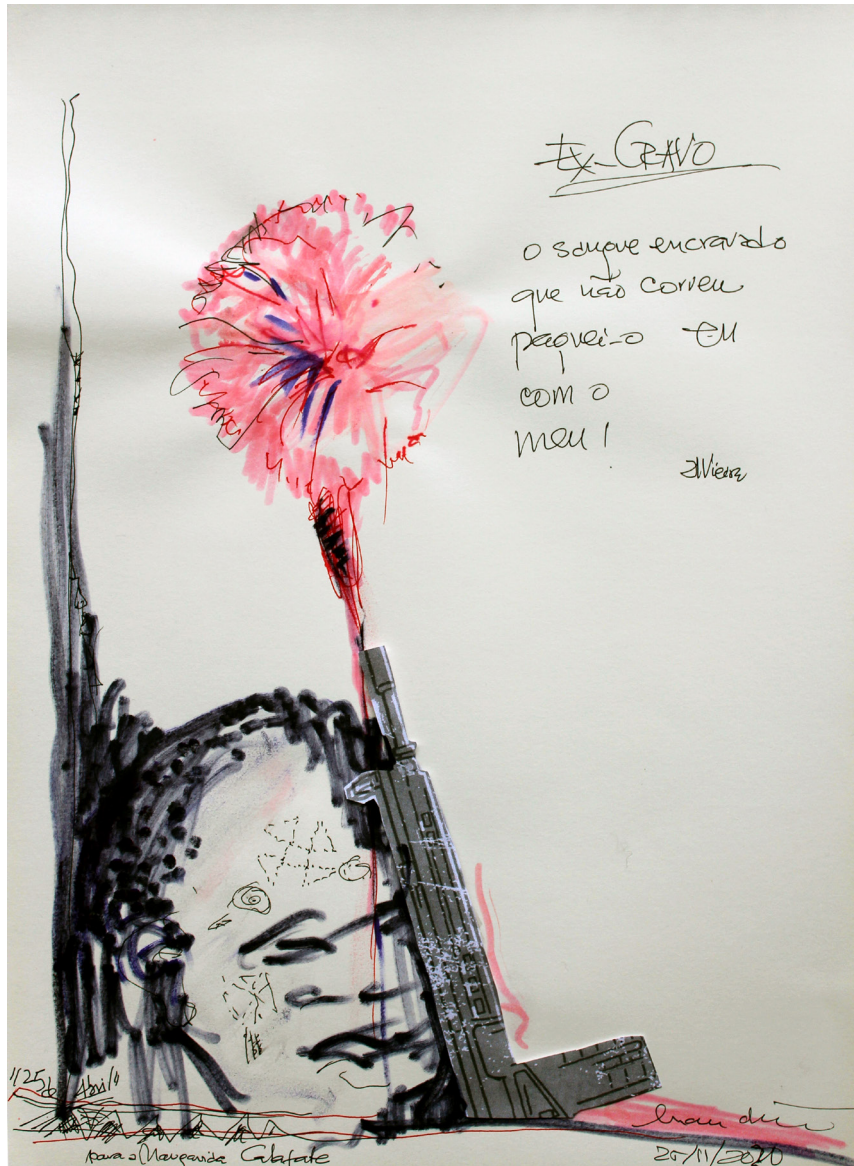 Ex-CRAVO
o sangue encravado
que não correu
paguei-o EU
com o
meu!
"25 de Abril"
para a Margarida Calafate
25/11/2020